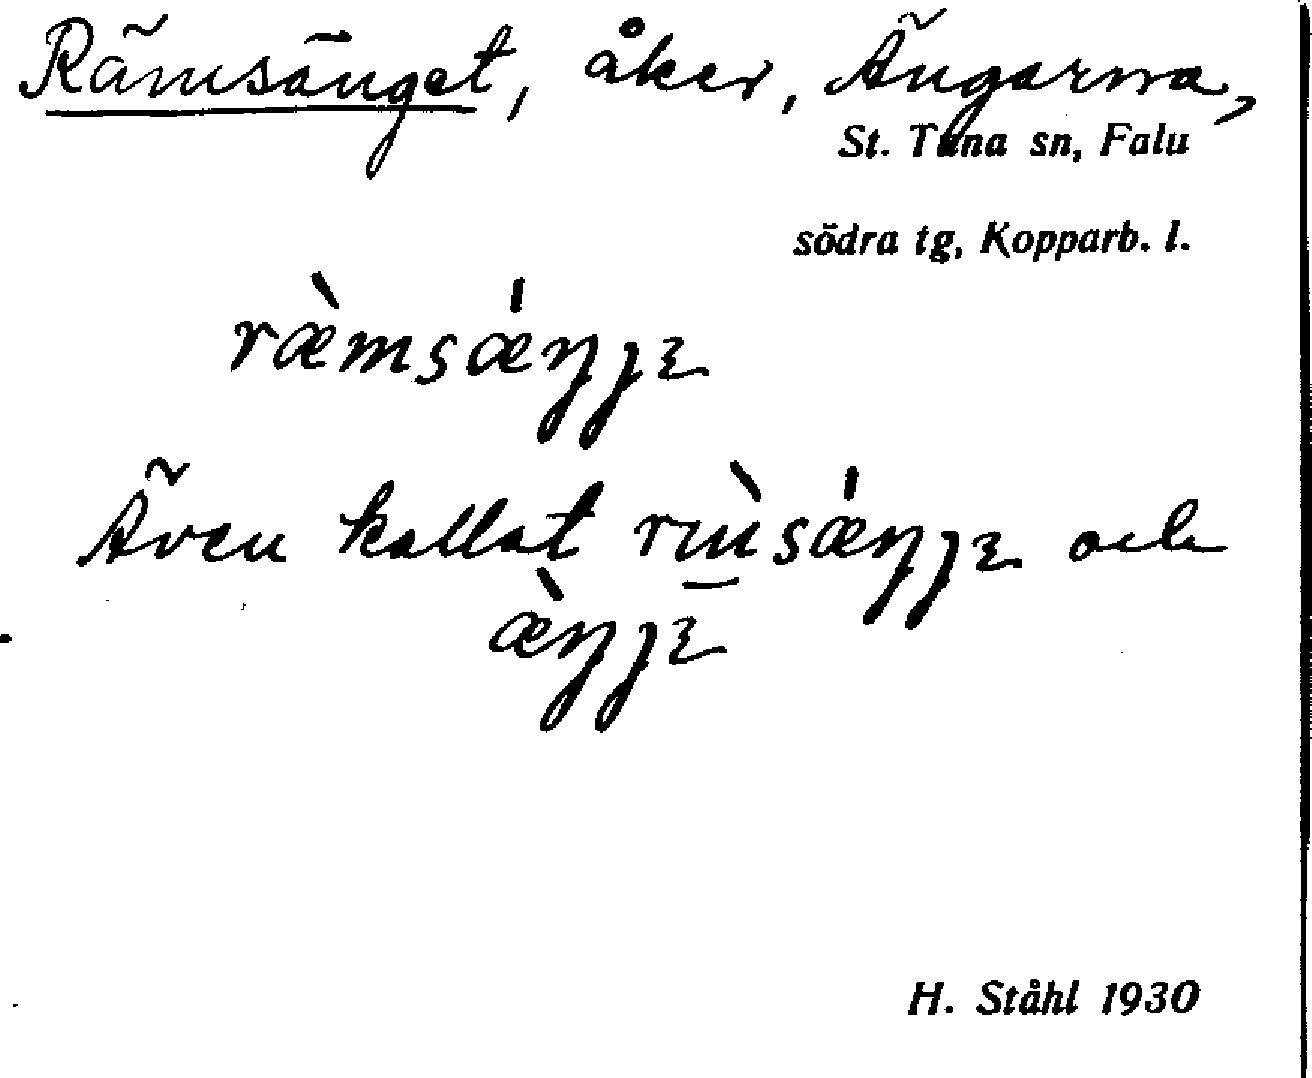 Rämsänget, åker, Ängarna,
St. Tuna sn, Falu
södra tg, Kopparb. l.
ræ̀msǽŋjɛ
Även kallat rm̀sǽŋjɛ och
æ̀ŋjɛ
H. Ståhl 1930